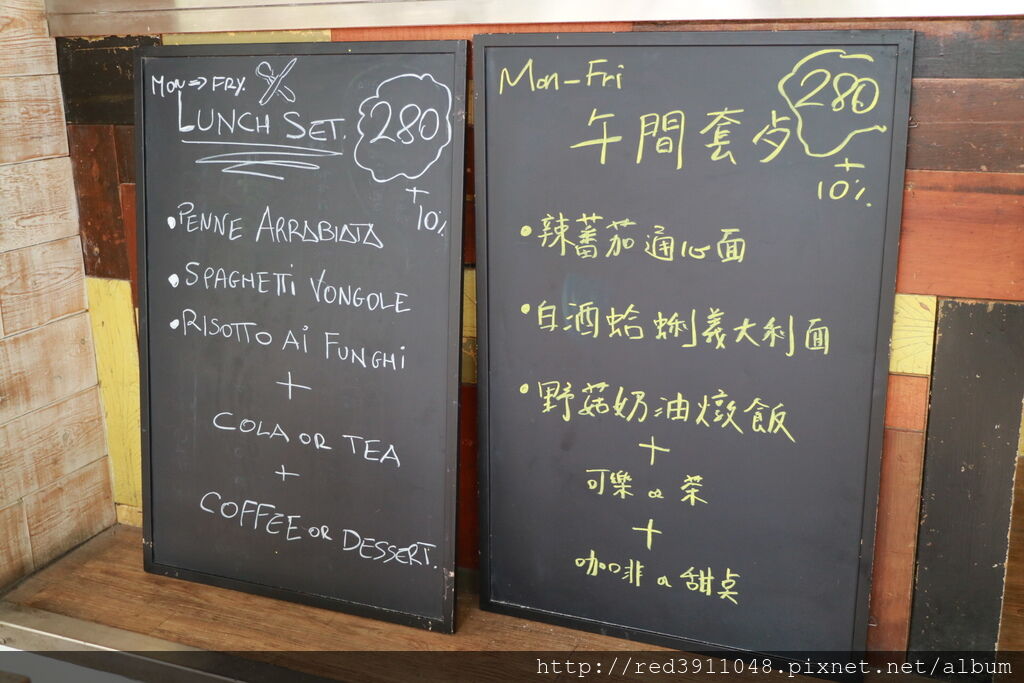 MON => FRY.
LUNCH SET.
280
+
10%
• PENNE ARRABIATA
• SPAGHETTI VONGOLE
• RISOTTO AI FUNGHI
+
COLA OR TEA
+
COFFEE OR DESSERT.
Mon-Fri
午間套歺
280
+
10%
• 辣蕃茄通心面
• 白酒蛤蜊義大利面
• 野菇奶油燉飯
+
可樂 or 茶
+
咖啡 or 甜点
http://red3911048.pixnet.net/album